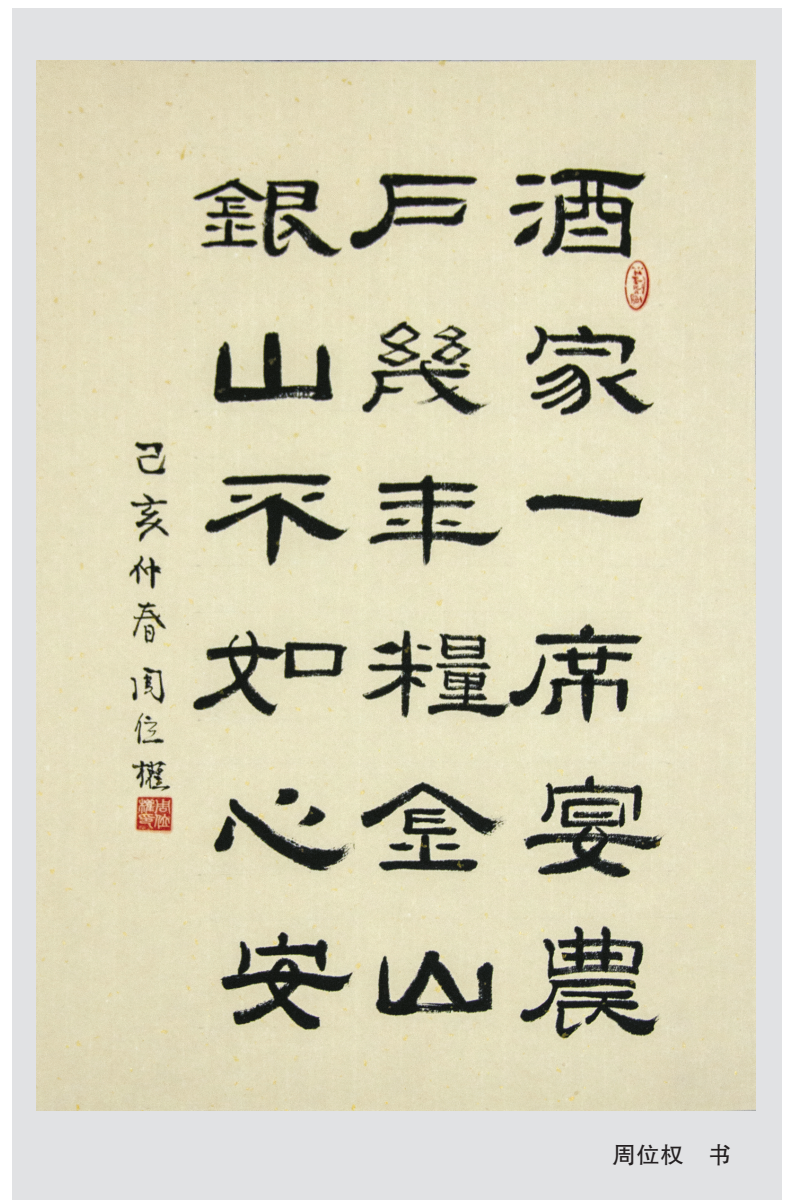 酒家一席宴農
戶幾年糧金山
銀山不如心安
己亥仲春 周位權
周位權印
周位权 书